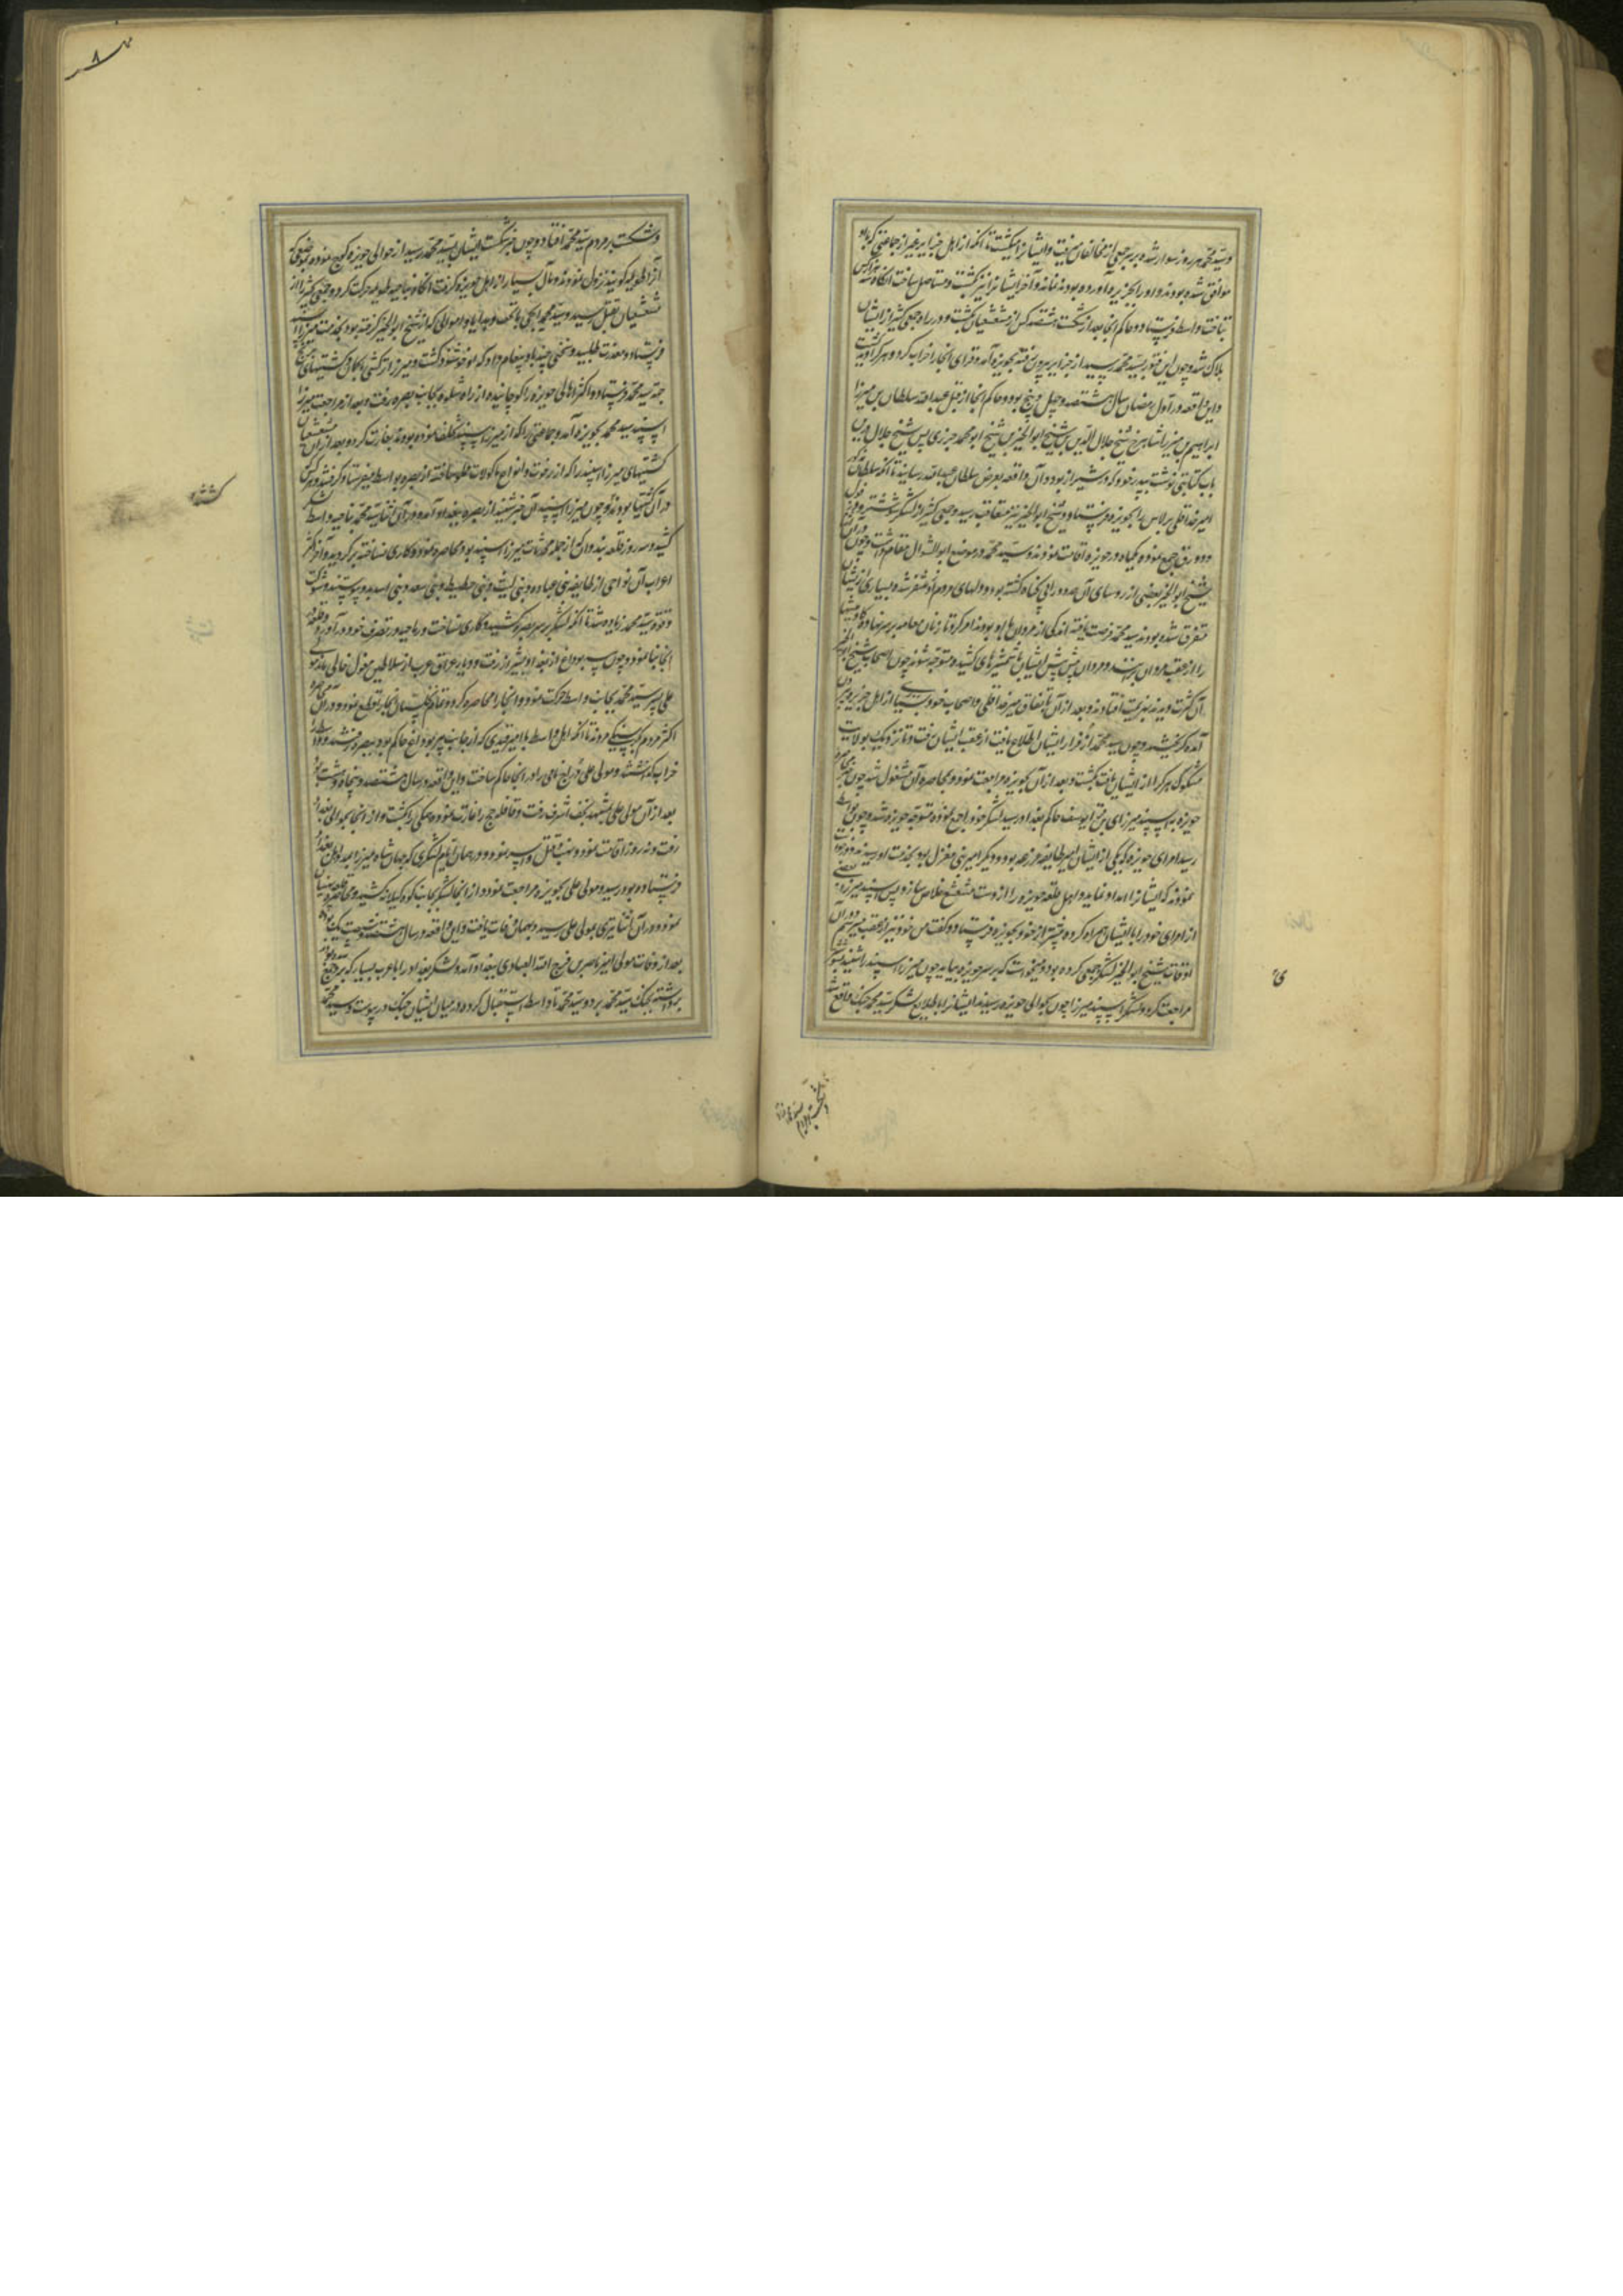 وسید محمد هر روز سوار شده بر سر جمعی از مخالفان میرفت و ایشانرا میکشت تا آنکه از اهل جزایر غیر از جماعتی که با او
موافق شده بودند و او را بجزیره آورده بودند نماند و آخر ایشانرا نیز بکشت و مستاصل ساخت آنگاه سه هزار کس
بتاخت واسط فرستاد و حاکم آنجا بعد از شکست هشتصد کس از مشعشعیان بکشت و در راه جمعی کثیر از ایشان
هلاک شدند و چون این فتور بسید محمد رسید از جزایر بیرون رفته بحویزه آمد و قرای آنجا را خراب کرد و هر کرا دید بکشت
و این واقعه در اول رمضان سال هشتصد و چهل و پنج بود و حاکم آنجا از قبل عبد الله سلطان بن میرزا
ابراهیم بن میرزا شاهرخ شیخ جلال الدین بن شیخ ابو الخیر بن شیخ ابو محمد جزری بود پس شیخ جلال در این
باب کتابتی نوشت به پدر خود و که در شیراز بود و آن واقعه بعرض سلطان عبد الله رسانید تا آنکه سلطان مذکور
امیر خدا قلی برلاس را بحویزه فرستاد و شیخ ابو الخیر نیز متعاقب رسید و جمعی کثیر از لشکر شوشتر و دزفول
و دورق جمع نموده یکماه در حویزه اقامت نمودند و سید محمد در موضع ابو الشوال مقام داشت و چون
شیخ ابو الخیر بعضی از روسای آن حدود را بی گناه کشته بود و دلهای مردم ازو متنفر شد و بسیاری از ایشان
متفرق شده بودند سید محمد فرصت یافته اندکی از مردان با او بودند امر کرد تا زنان عمامه بر سر نهاد و گاومیشها
را از عقب مردان براندند و مردان پیش پیش ایشان با شمشیرهای کشیده متوجه شوند چون اصحاب شیخ ابو الخیر
آن کثرت دیدند بهزیمت افتادند و بعد از آن باتفاق میر خدا قلی و اصحاب خود و بسیاری از اهل حویزه بیرون
آمده گریختند و چون سید محمد از فرار ایشان اطلاع یافت از عقب ایشان برفت و تا نزدیک بولایت
مشکوک هر کرا از ایشان یافت بکشت و بعد از آن بحویزه مراجعت نمود و بمحاصره آن مشغول شد چون خبر محاصره
حویزه به اسپند میرزای بن قرا یوسف حاکم بغداد رسید لشکر خود را جمع نموده متوجه حویزه شد و چون بواسط
رسید امرای حویزه
نمودند که ایشانرا امداد نماید و اهل قلعه حویزه را از دست مشعشع خلاص سازد پس اسپند میرزا بعضی
از امرای خود را با ایشان همراه کرده پیشتر از خود بحویزه فرستاد و گفت من خود نیز از عقب میرسم
اوقات شیخ ابو الخیر لشکر جمعی کرده بود و میخواست که بر سر حویزه بیاید چون میرزا اسپند را شنید
مراجعت کرد و لشکر اسپند میرزا چون بحوالی حویزه رسیدند ایشانرا با طلایع لشکر سید محمد جنگ واقع شد
وشکست بر مردم سید محمد افتاد و چون خبر شکست ایشان بسید محمد رسید از حوالی حویزه کوچ نموده بموضعی که
آنرا طویله گویند نزول نمودند و مال بسیار از اهل حویزه گرفت آنگاه بناحیه طویله حرکت کرد و جمعی کثیر از
مشعشعیان بقتل رسید و سید محمد ایلچی با تحف و هدایا و اموالی که از شیخ ابو الخیر گرفته بود بخدمت میرزا اسپند
فرستاد و معذرت طلبید و
جهة سید محمد فرستاد و اکثر اهالی حویزه را کوچانیده از راه شط بجانب بصره رفت و بعد از مراجعت میرزا
اسپند سید محمد بحویزه آمد و جماعتی را که از میرزا اسپند تخلف نموده بودند بغارت کرد و بعد از آن مشعشعیان
کشتیهای میرزا اسپند را که از رخوت و انواع ماکولات مملو ساخته از بصره بواسط میفرستاد گرفتند و هر کس
در آن کشتیها بود
کشید و سه روز قلعه بندوان که از جمله محدثات میرزا اسپند بود محاصره نمود و کاری نساخته برگردید و آخر اکثر
اعراب آن نواحی از طایفه بنی عباده و بنی لیث و بنی حطیط و بنی سعد و بنی اسد بدو پیوستند و شوکت
و قوة سید محمد زیاده شد تا آنکه لشکر بر سر بصره کشید و کاری نساخت و رماحیه در تصرف خود در آورد و قلعه
آنجا بنا نمود و چون پیر بوداغ از بغداد بشیراز رفت و دیار عراق عرب از سلاطین مغول خالی ماند مولی
علی پسر سید محمد بجانب واسط حرکت نمود و آنجا را محاصره کرد و تمام نخلستان آنجا را قطع نمود و در آن محاصره
اکثر مردم از گرسنگی مردند تا آنکه اهل واسط با امیر افندی که از جانب پیر بوداغ حاکم بود ببصره رفتند و واسط
خراب گذاشتند و مولی علی دراج نامی را در آنجا حاکم ساخت و این واقعه در سال هشتصد و پنجاه و هشت بود
بعد از آن مولی علی بمشهد نجف اشرف رفت و قافله حج را غارت نموده همگی را بکشت و از آنجا بحوالی بغداد
رفت و نه روز اقامت نمود و نهب و قتل و اسیر نمود و در همان ایام لشکری که جهان شاه میرزا بمدد اهل بغداد
فرستاده بود رسید و مولی علی بحویزه مراجعت نمود و از آنجا لشکر بجانب کوه کیلویه کشید و محاصره قلعه بهبهان
نمود و در آن اثنا تیری بمولی علی رسید و بهمان وفات یافت و این واقعه در سال هشتصد و شصت و یک بوده
بعد از وفات مولی علی امیر ناصر بن فرج الله العبادی ببغداد آمد و لشکر بغداد را با عرب بسیار که
برداشته بجنگ سید محمد برد و سید محمد تا واسط استقبال کرده در میان ایشان جنگ در پیوست و سید محمد
وشکست بر مردم